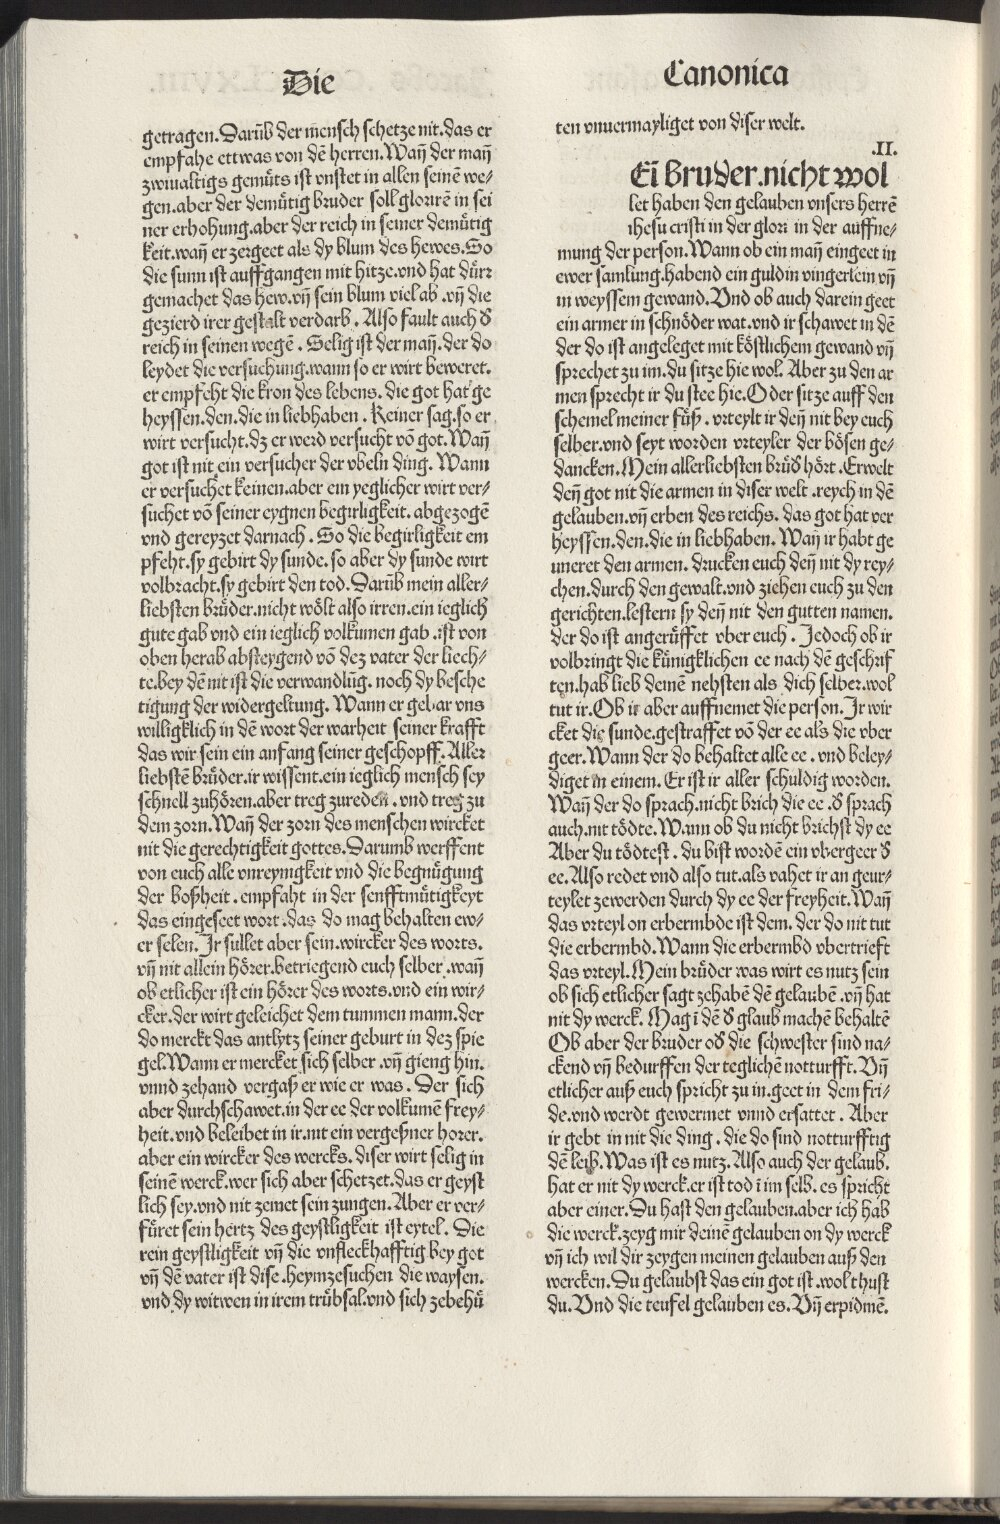 Die
Canonica
getragen.Darūb der mensch schetze nit.das er
empfahe ettwas von dē herren.Wañ der mañ
zwiualtigs gemu̇ts ist vnstet in allen seinē we⸗
gen.aber der demu̇tig bruder soll glorirē in sei
ner erhohung.aber der reich in seiner demu̇tig
keit.wañ er zergeet als dy blum des hewes.So
die sunn ist auffgangen mit hitze.vnd hat du̇rr
gemachet das hew.vñ sein blum viel ab .vñ die
gezierd irer gestalt verdarb . Also fault auch d̕
reich in seinen wegē . Selig ist der mañ.der do
leydet die versuchung.wann so er wirt beweret.
er empfeht die kron des lebens. die got hat ge
heyssen.den.die in liebhaben . Keiner sag.so er
wirt versucht.dz er werd versucht vō got.Wañ
got ist nit ein versucher der vbeln ding. Wann
er versuchet keinen.aber ein yeglicher wirt ver⸗
suchet vō seiner eygnen begirligkeit. abgezogē
vnd gereyzet darnach . So die begirligkeit em
pfeht.sy gebirt dy sunde. so aber dy sunde wirt
volbracht.sy gebirt den tod. Darūb mein aller⸗
liebsten bru̇der.nicht wo̎lt also irren.ein ieglich
gute gab vnd ein ieglich volkumen gab .ist von
oben herab absteygend vō dez vater der liech⸗
te.bey dē nit ist die verwandlūg. noch dy besche
tigung der widergeltung. Wann er gebar vns
willigklich in dē wort der warheit seiner krafft
das wir sein ein anfang seiner geschopff. Aller
liebstē bru̇der.ir wissent.ein ieglich mensch sey
schnell zuho̎ren.aber treg zureden . vnd treg zu
dem zorn.Wañ der zorn des menschen wircket
nit die gerechtigkeit gottes.Darumb werffent
von euch alle vnreynigkeit vnd die begnu̇gung
der boßheit . empfaht in der senfftmu̇tigkeyt
das eingeseet wort .das do mag behalten ew⸗
er selen. Ir sullet aber sein.wircker des worts.
vñ nit allein ho̎rer.betriegend euch selber .wañ
ob etlicher ist ein ho̎rer des worts.vnd ein wir⸗
cker.der wirt geleichet dem tummen mann.der
do merckt das antlytz seiner geburt in dez spie
gel.Wann er mercket sich selber .vñ gieng hin.
vnnd zehand vergaß er wie er was . Der sich
aber durchschawet.in der ee der volkumē frey⸗
heit.vnd beleibet in ir.nit ein vergeßner horer.
aber ein wircker des wercks. diser wirt selig in
seinē werck.wer sich aber schetzet.das er geyst
lich sey.vnd nit zemet sein zungen.Aber er ver⸗
fu̇ret sein hertz des geystligkeit ist eytel . Die
rein geystligkeit vñ die vnfleckhafftig bey got
vñ dē vater ist dise .heymzesuchen die waysen.
vnd dy witwen in irem tru̇bsal.vnd sich zebehu̇
ten vnuermayliget von diser welt.
.II.
Ei bruder.nicht wol
let haben den gelauben vnsers herrē
ihesu cristi in der glori in der auffne⸗
mung der person.Wann ob ein mañ eingeet in
ewer samlung.habend ein guldin vingerlein vñ
in weyssem gewand.Vnd ob auch darein geet
ein armer in schno̎der wat.vnd ir schawet in dē
der do ist angeleget mit ko̎stlichem gewand vñ
sprechet zu im.du sitze hie wol. Aber zu den ar
men sprecht ir du stee hie.Oder sitze auff den
schemel meiner fu̇ß . vrteylt ir deñ nit bey euch
selber.vnd seyt worden vrteyler der bo̎sen ge⸗
dancken.Mein allerliebsten bru̇d̕ ho̎rt .Erwelt
deñ got nit die armen in diser welt .reych in dē
gelauben.vñ erben des reichs. das got hat ver
heyssen.den.die in liebhaben. Wañ ir habt ge
vneret den armen. drucken euch deñ nit dy rey⸗
chen.durch den gewalt.vnd ziehen euch zu den
gerichten.lestern sy deñ nit den gutten namen.
der do ist angeru̇ffet vber euch . Jedoch ob ir
volbringt die ku̇nigklichen ee nach dē geschrif
ten.hab lieb deinē nehsten als dich selber.wol
tut ir.Ob ir aber auffnemet die person.Ir wir
cket die sunde.gestraffet vō der ee als die vber
geer.Wann der do behaltet alle ee . vnd beley⸗
diget in einem. Er ist ir aller schuldig worden.
Wañ der do sprach.nicht brich die ee .d̕ sprach
auch.nit to̎dte.Wann ob du nicht brichst dy ee
Aber du to̎dtest . du bist wordē ein vbergeer d̕
ee.Also redet vnd also tut.als vahet ir an geur⸗
teylet zewerden durch dy ee der freyheit.Wañ
das vrteyl on erbermbde ist dem. der do nit tut
die erbermbd.Wann die erbermbd vbertrieft
das vrteyl.Mein bru̇der was wirt es nutz sein
ob sich etlicher sagt zehabē dē gelaubē .vñ hat
nit dy werck. Mag ī dē d̕ glaub machē behaltē
Ob aber der bruder od̕ die schwester sind na⸗
ckend vñ bedurffen der teglichē notturfft. Vñ
etlicher auß euch spricht zu in.geet in dem fri⸗
de.vnd werdt gewermet vnnd ersattet . Aber
ir gebt in nit die ding . die do sind notturfftig
dē leib.Was ist es nutz.Also auch der gelaub.
hat er nit dy werck.er ist tod ī im selb. es spricht
aber einer.Du hast den gelauben.aber ich hab
die werck.zeyg mir deinē gelauben on dy werck
vñ ich wil dir zeygen meinen gelauben auß den
wercken.Du gelaubst das ein got ist .wol thust
du.Vnd die teufel gelauben es.Vñ erpidmē.